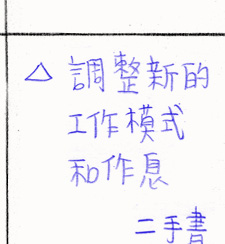 △ 調整新的
工作模式
和作息
二手書